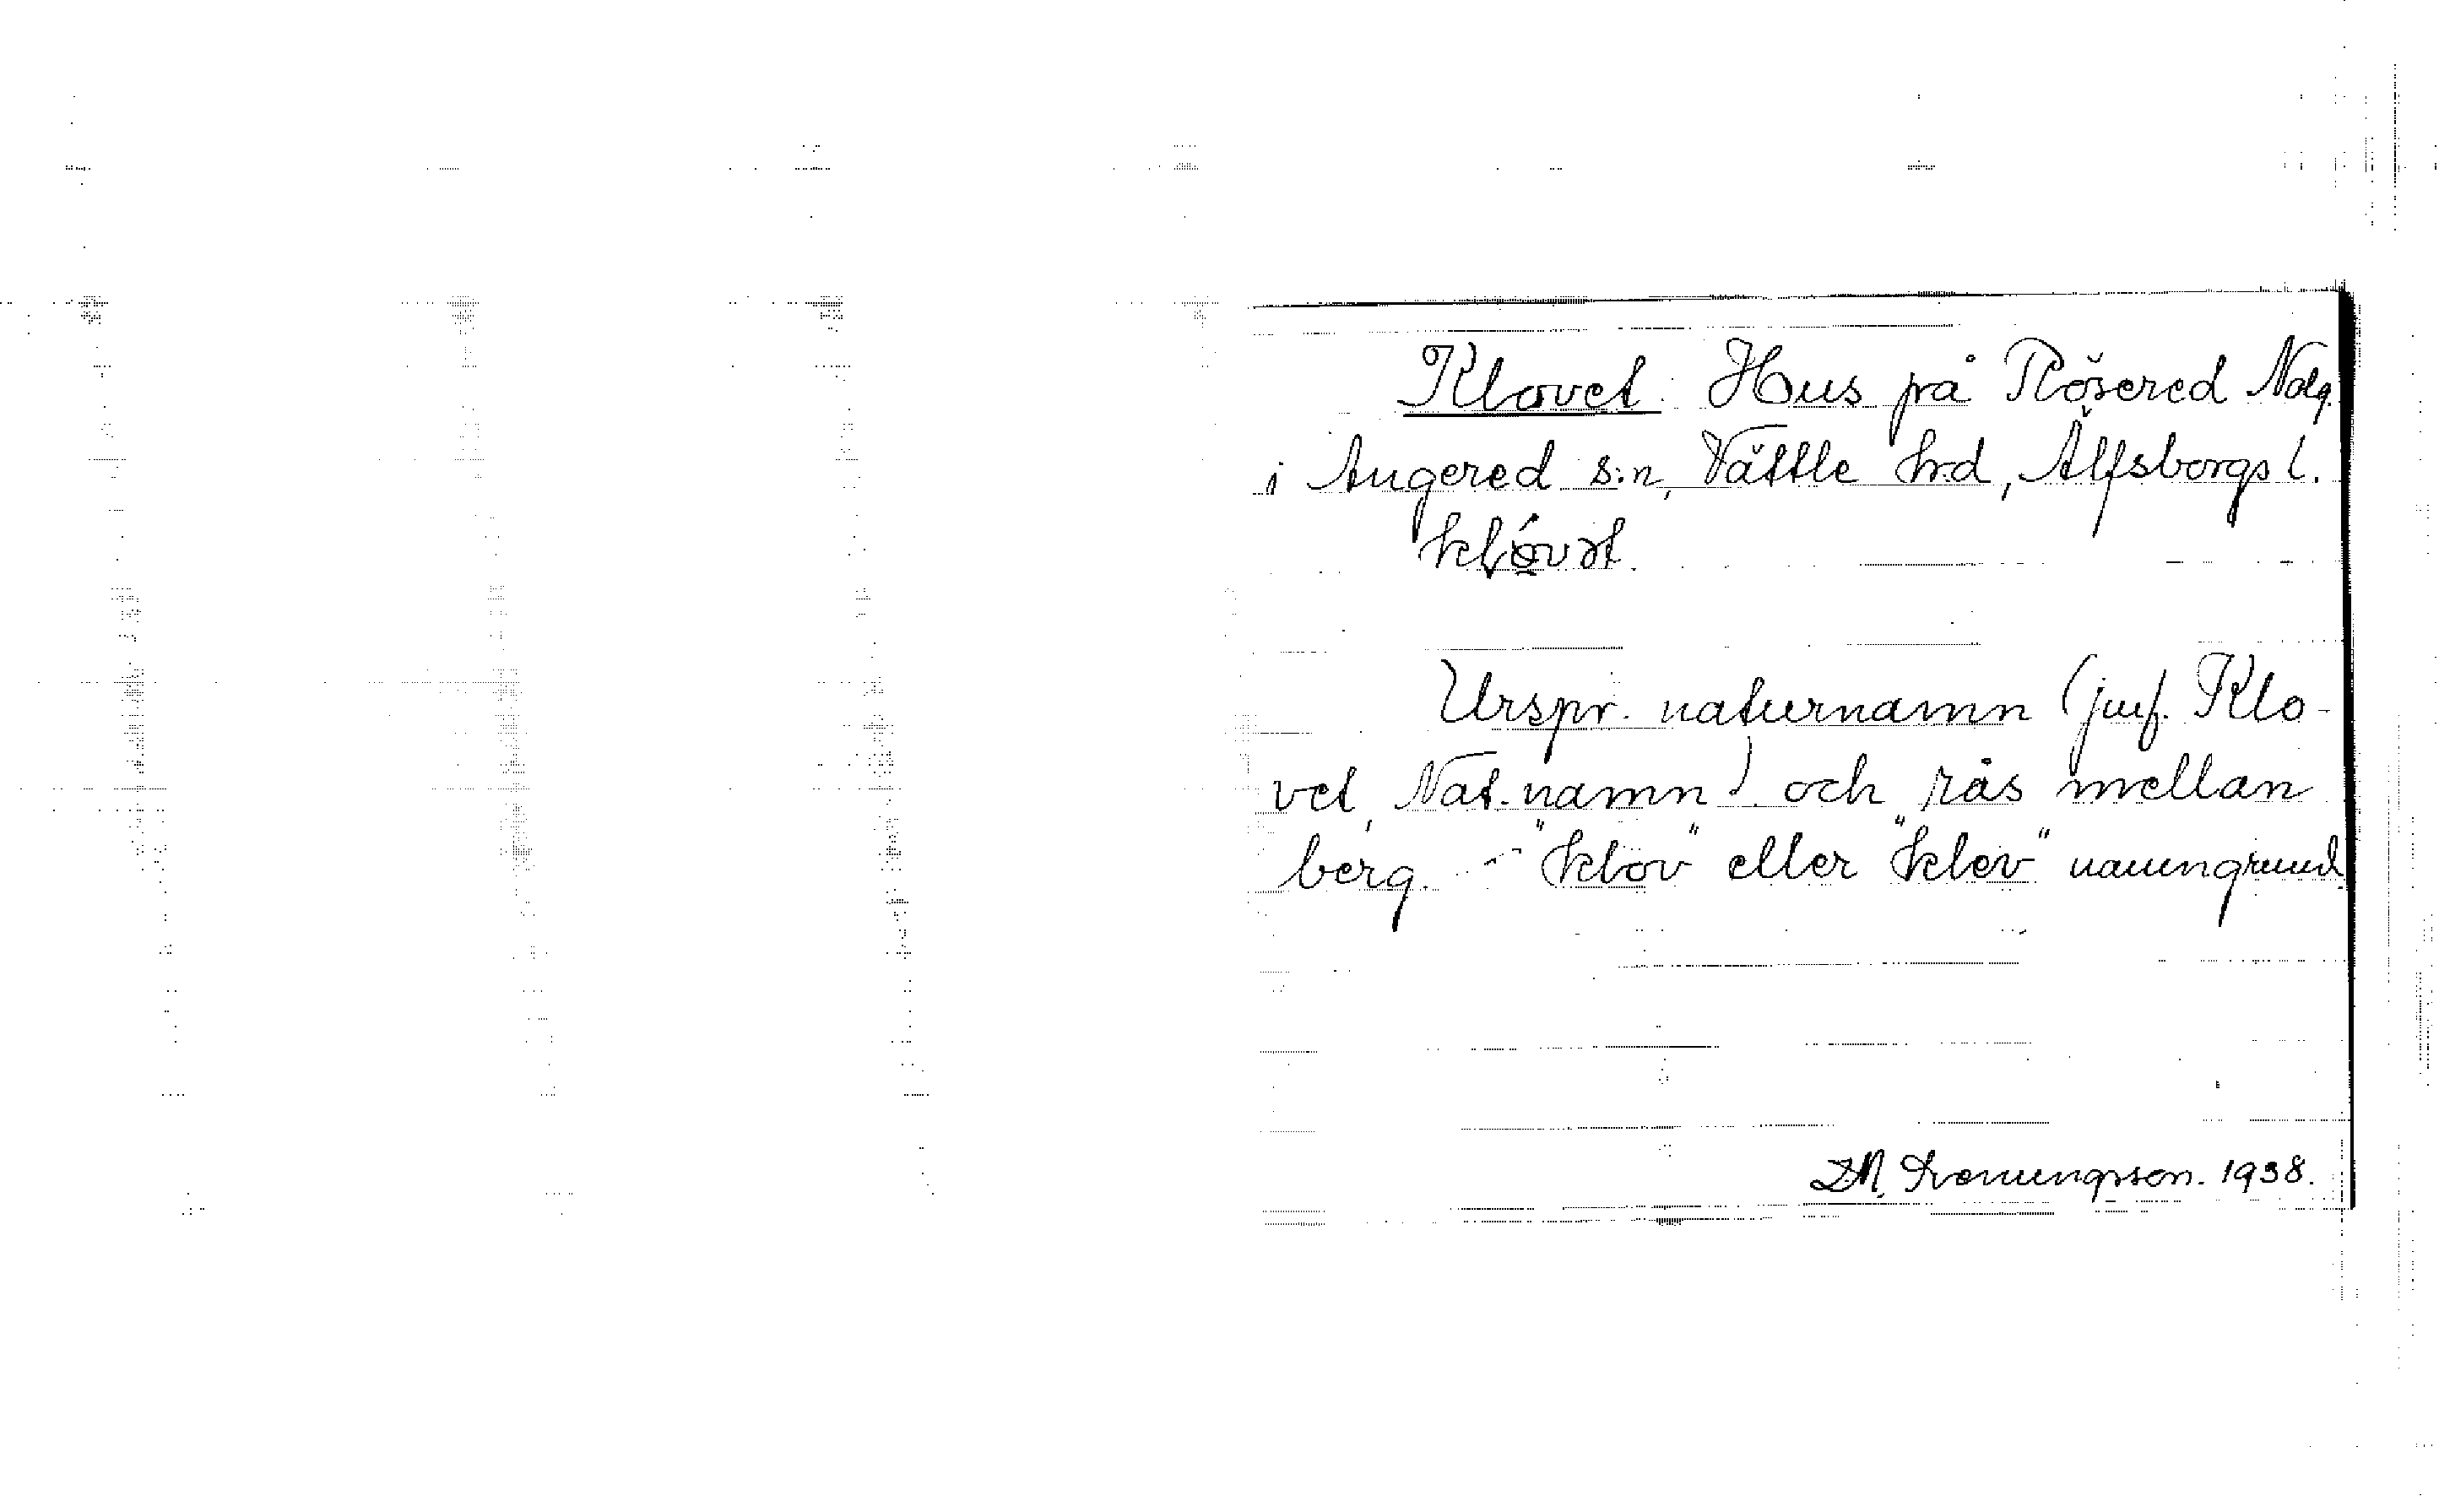 Klovet. Hus på Rösered Nolg.
i Angered s:n, Vättle hd, Älfsborgs l.
klóvət.
Urspr. naturnamn (jmf. Klo-
vet, Nat.namn) och pås mellan
berg. - "klov" eller "klev" namngrund
1938.